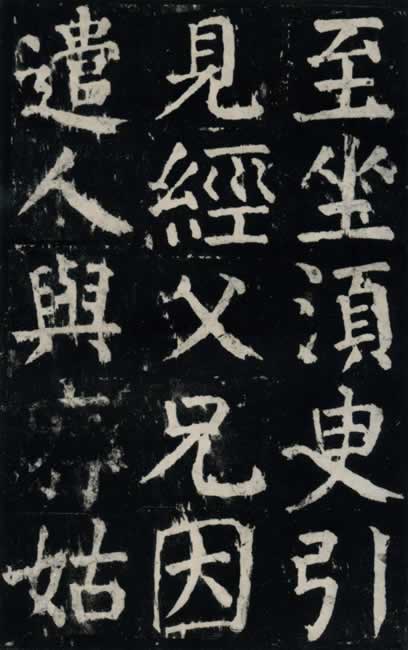 至坐須臾引
見經父兄因
遣人與姑